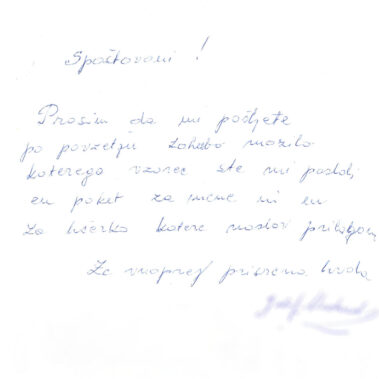 Spoštovani!
Prosim da mi pošljete
po povzetju mazilo
katerega vzorec ste mi poslali
en paket za mene in en
za hčerko katere naslov prilagam
Že vnaprej prisrčna hvala